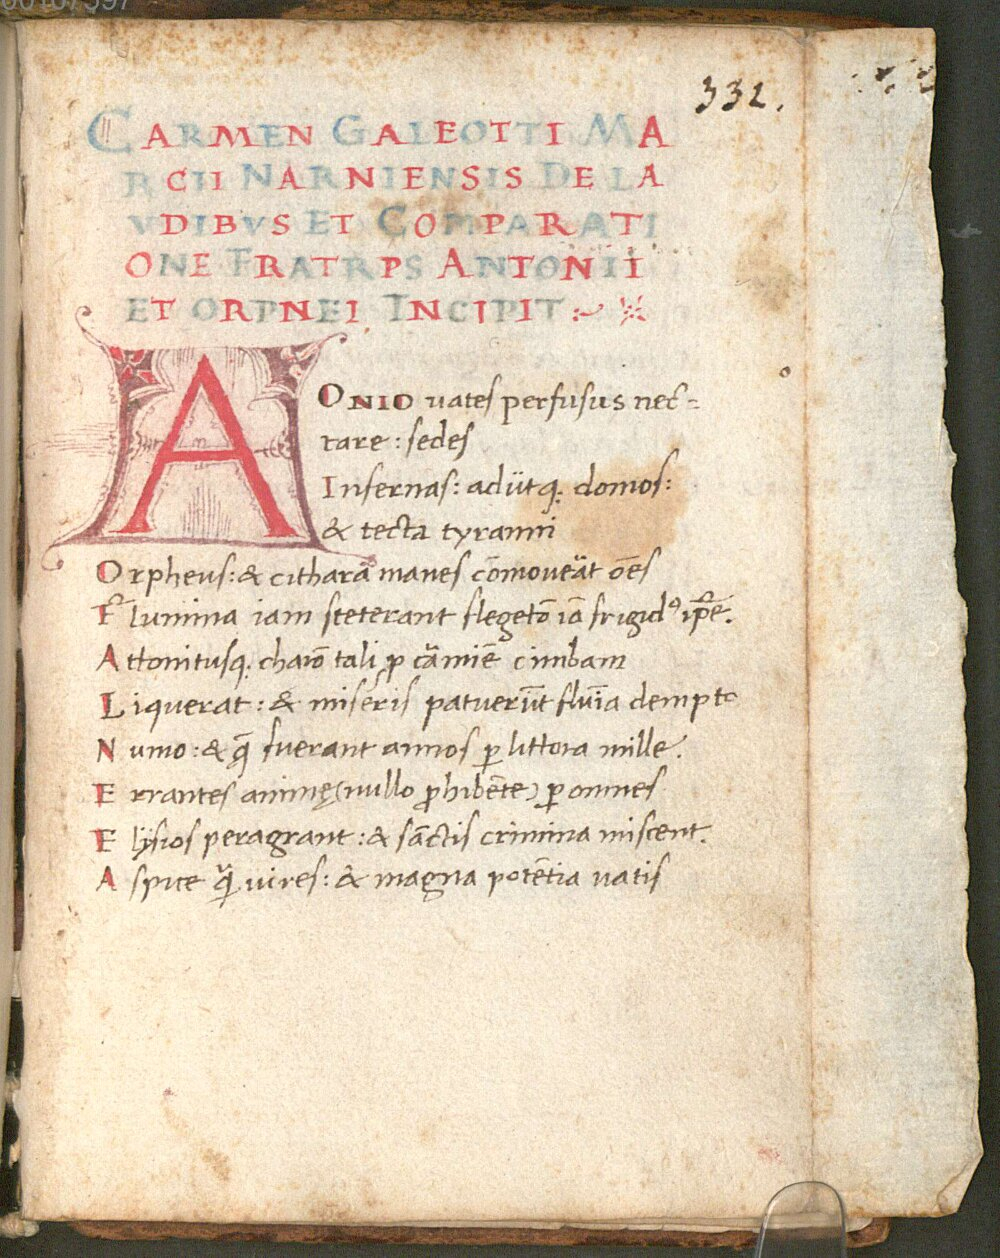 332.
CARMEN GALEOTTI MA
RCII NARNIENSIS DE LA
VDIBVS ET COMPARATI
ONE FRATRPS ANTONII
ET ORPNEI INCIPIT
AONIO uates perfusus nec=
tare: sedes
Infernas: adiitq. domos:
& tecta tyranni
Orpheus: & citharā manes cōmoveāt oēs
Flumina iam steterant flegetō iā frigidꝰ ip̄e.
Attonitusq. charō tali ꝓ cāmīe cimbam
Liquerat: & miseris patuerūt flūīa dempto
Numo: & q̄ fuerant annos ꝑ littora mille.
Errantes animę (nullo ꝓhibēte) ꝑ omnes
Elysios peragrant: & sāctis crimina miscent.
Aspice q̄ vires: & magna potētia uatis